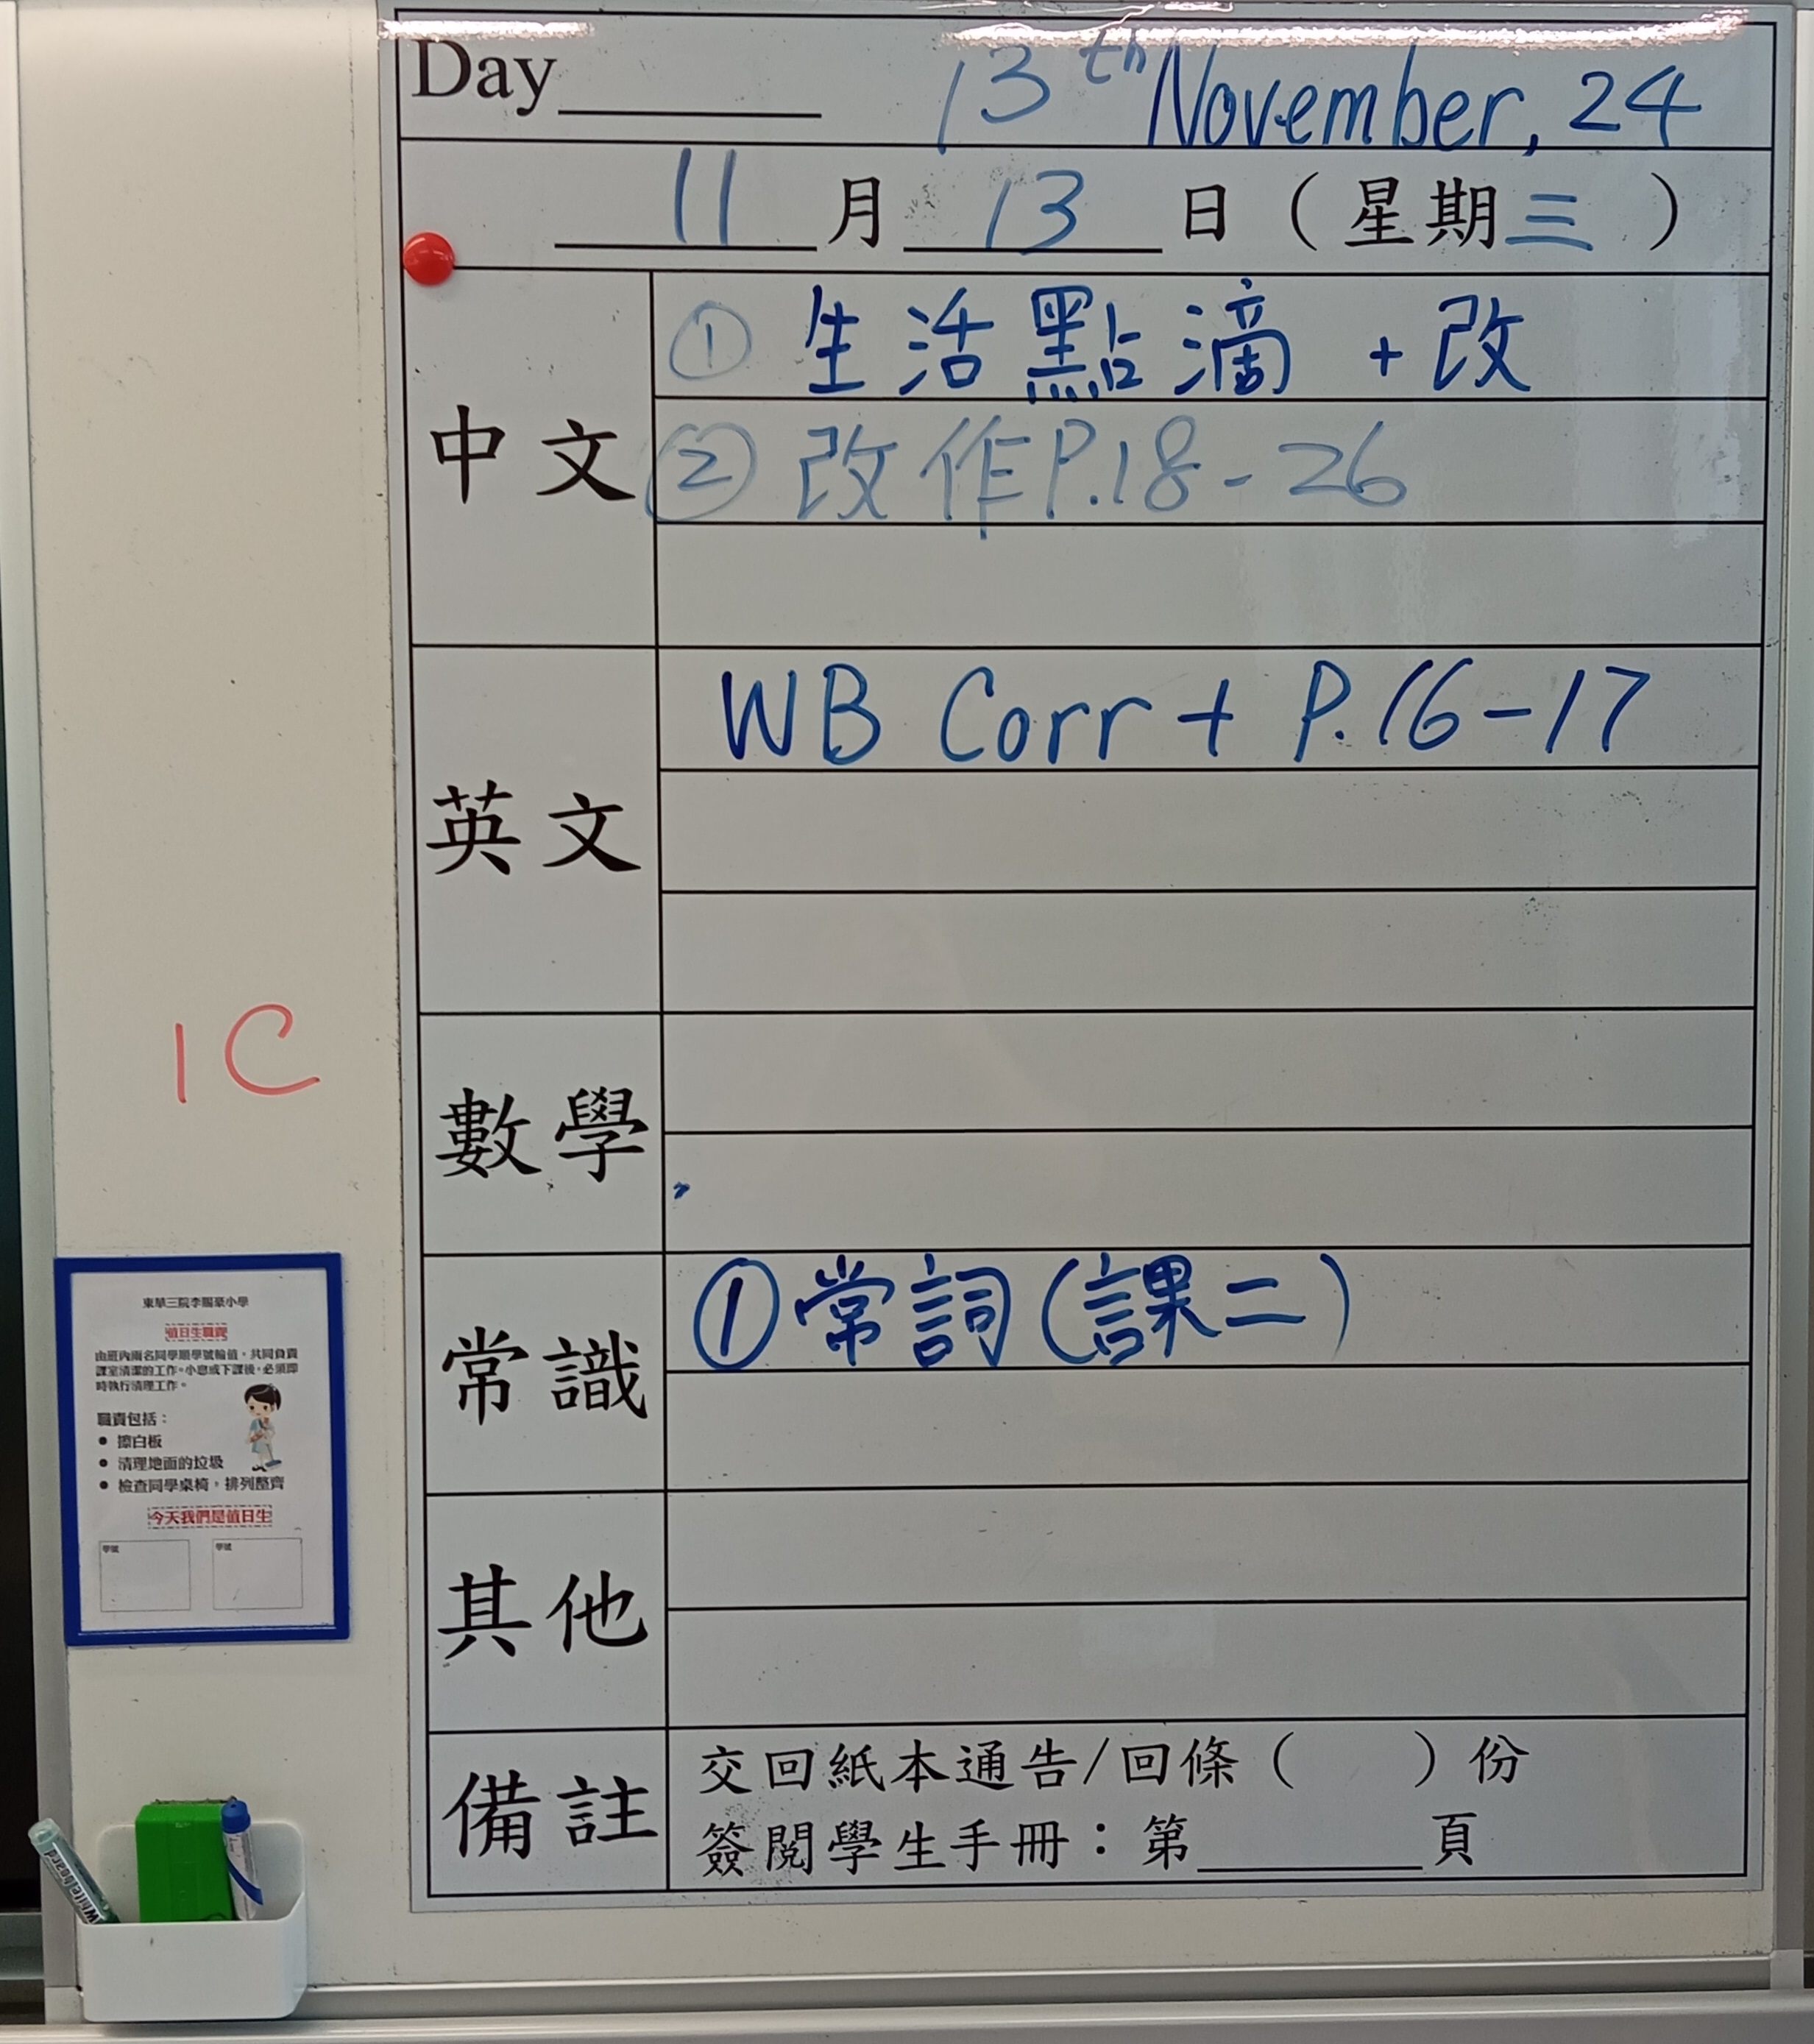 Day 13th November, 24
11 月 13 日（星期三）
中文
① 生活點滴 + 改
② 改作P.18-26
英文
WB Corr + P.16-17
數學
常識
①常詞(課二)
其他
備註
交回紙本通告/回條（ ）份
簽閱學生手冊：第 頁
1C
東華三院李賜豪小學
值日生職責
由班內兩名同學順學號輪值，共同負責
課室清潔的工作。小息或下課後，必須即
時執行清理工作。
職責包括：
● 擦白板
● 清理地面的垃圾
● 檢查同學桌椅，排列整齊
今天我們是值日生
學號 學號
Whiteboard